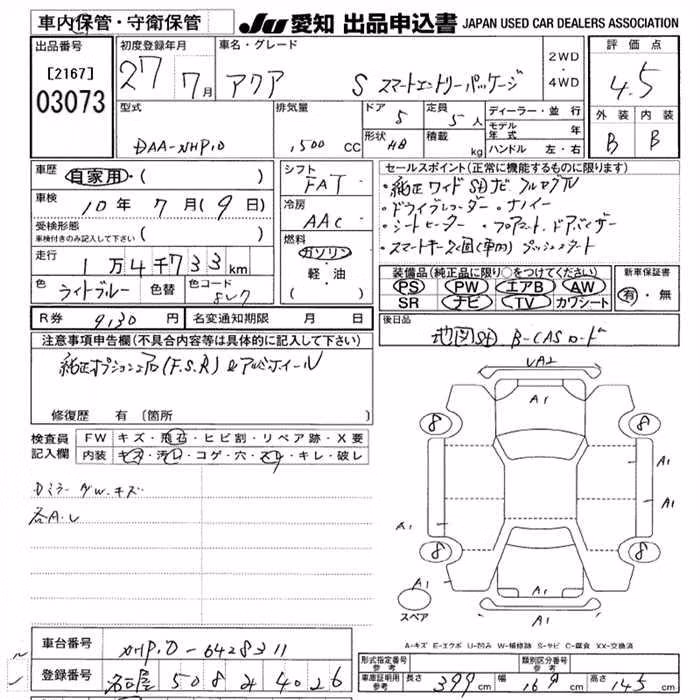 車内保管・守衛保管 JU 愛知 出品申込書 JAPAN USED CAR DEALERS ASSOCIATION
出品番号 [2167] 03073
初度登録年月 27 7月
車名・グレード アクア S スマートエントリーパッケージ
2WD ・ 4WD
評価点 4.5
外装 B 内装 B
型式 DAA-NHP10
排気量 1,500 CC
ドア 5 定員 5人
形状 HB 積載 kg
ディーラー・並行
モデル年式 年
ハンドル 左・右
車歴 自家用・( )
車検 10年 7月(9日)
受検形態 車検付きのみ記入して下さい ( )
走行 1万4千733km
色 ライトブルー 色替 色コード 8W7
シフト FAT
冷房 AAC
燃料 ガソリン 軽・油
( )
セールスポイント(正常に機能するものに限ります)
・純正ワイドSDナビ フルセグTV
・ドライブレコーダー ・ナノイー
・シートヒーター ・フロアマット、ドアバイザー
・スマートキー2個(車内) プッシュスタート
装備品(純正品に限り○をつけてください)
PS PW エアB AW
SR ナビ TV カワシート
新車保証書 有・無
R券 9,130円 名変通知期限 月 日
後日品 地図SD B-CASカード
注意事項申告欄(不具合内容等は具体的に記入して下さい)
純正オプションエアロ(F.S.R) & アルミホイール
修復歴 有 [箇所 ]
検査員記入欄 FW キズ・飛石・ヒビ割・リペア跡・X要
内装 キズ・汚レ・コゲ・穴・スレ・キレ・破レ
Dミラー ダW.キズ
各A.U
UA2
A1
8 8
A1
A1
A1 A1
8 8
A1 A1 A1
スペア
A-キズ E-エクボ U-凹み W-補修跡 S-サビ C-腐食 XX-交換済
車台番号 NHP10-6428311
登録番号 名古屋 508 み 4026
形式指定番号参考 類別区分番号参考
車庫証明用参考 長さ 399cm 幅 169cm 高さ 145cm